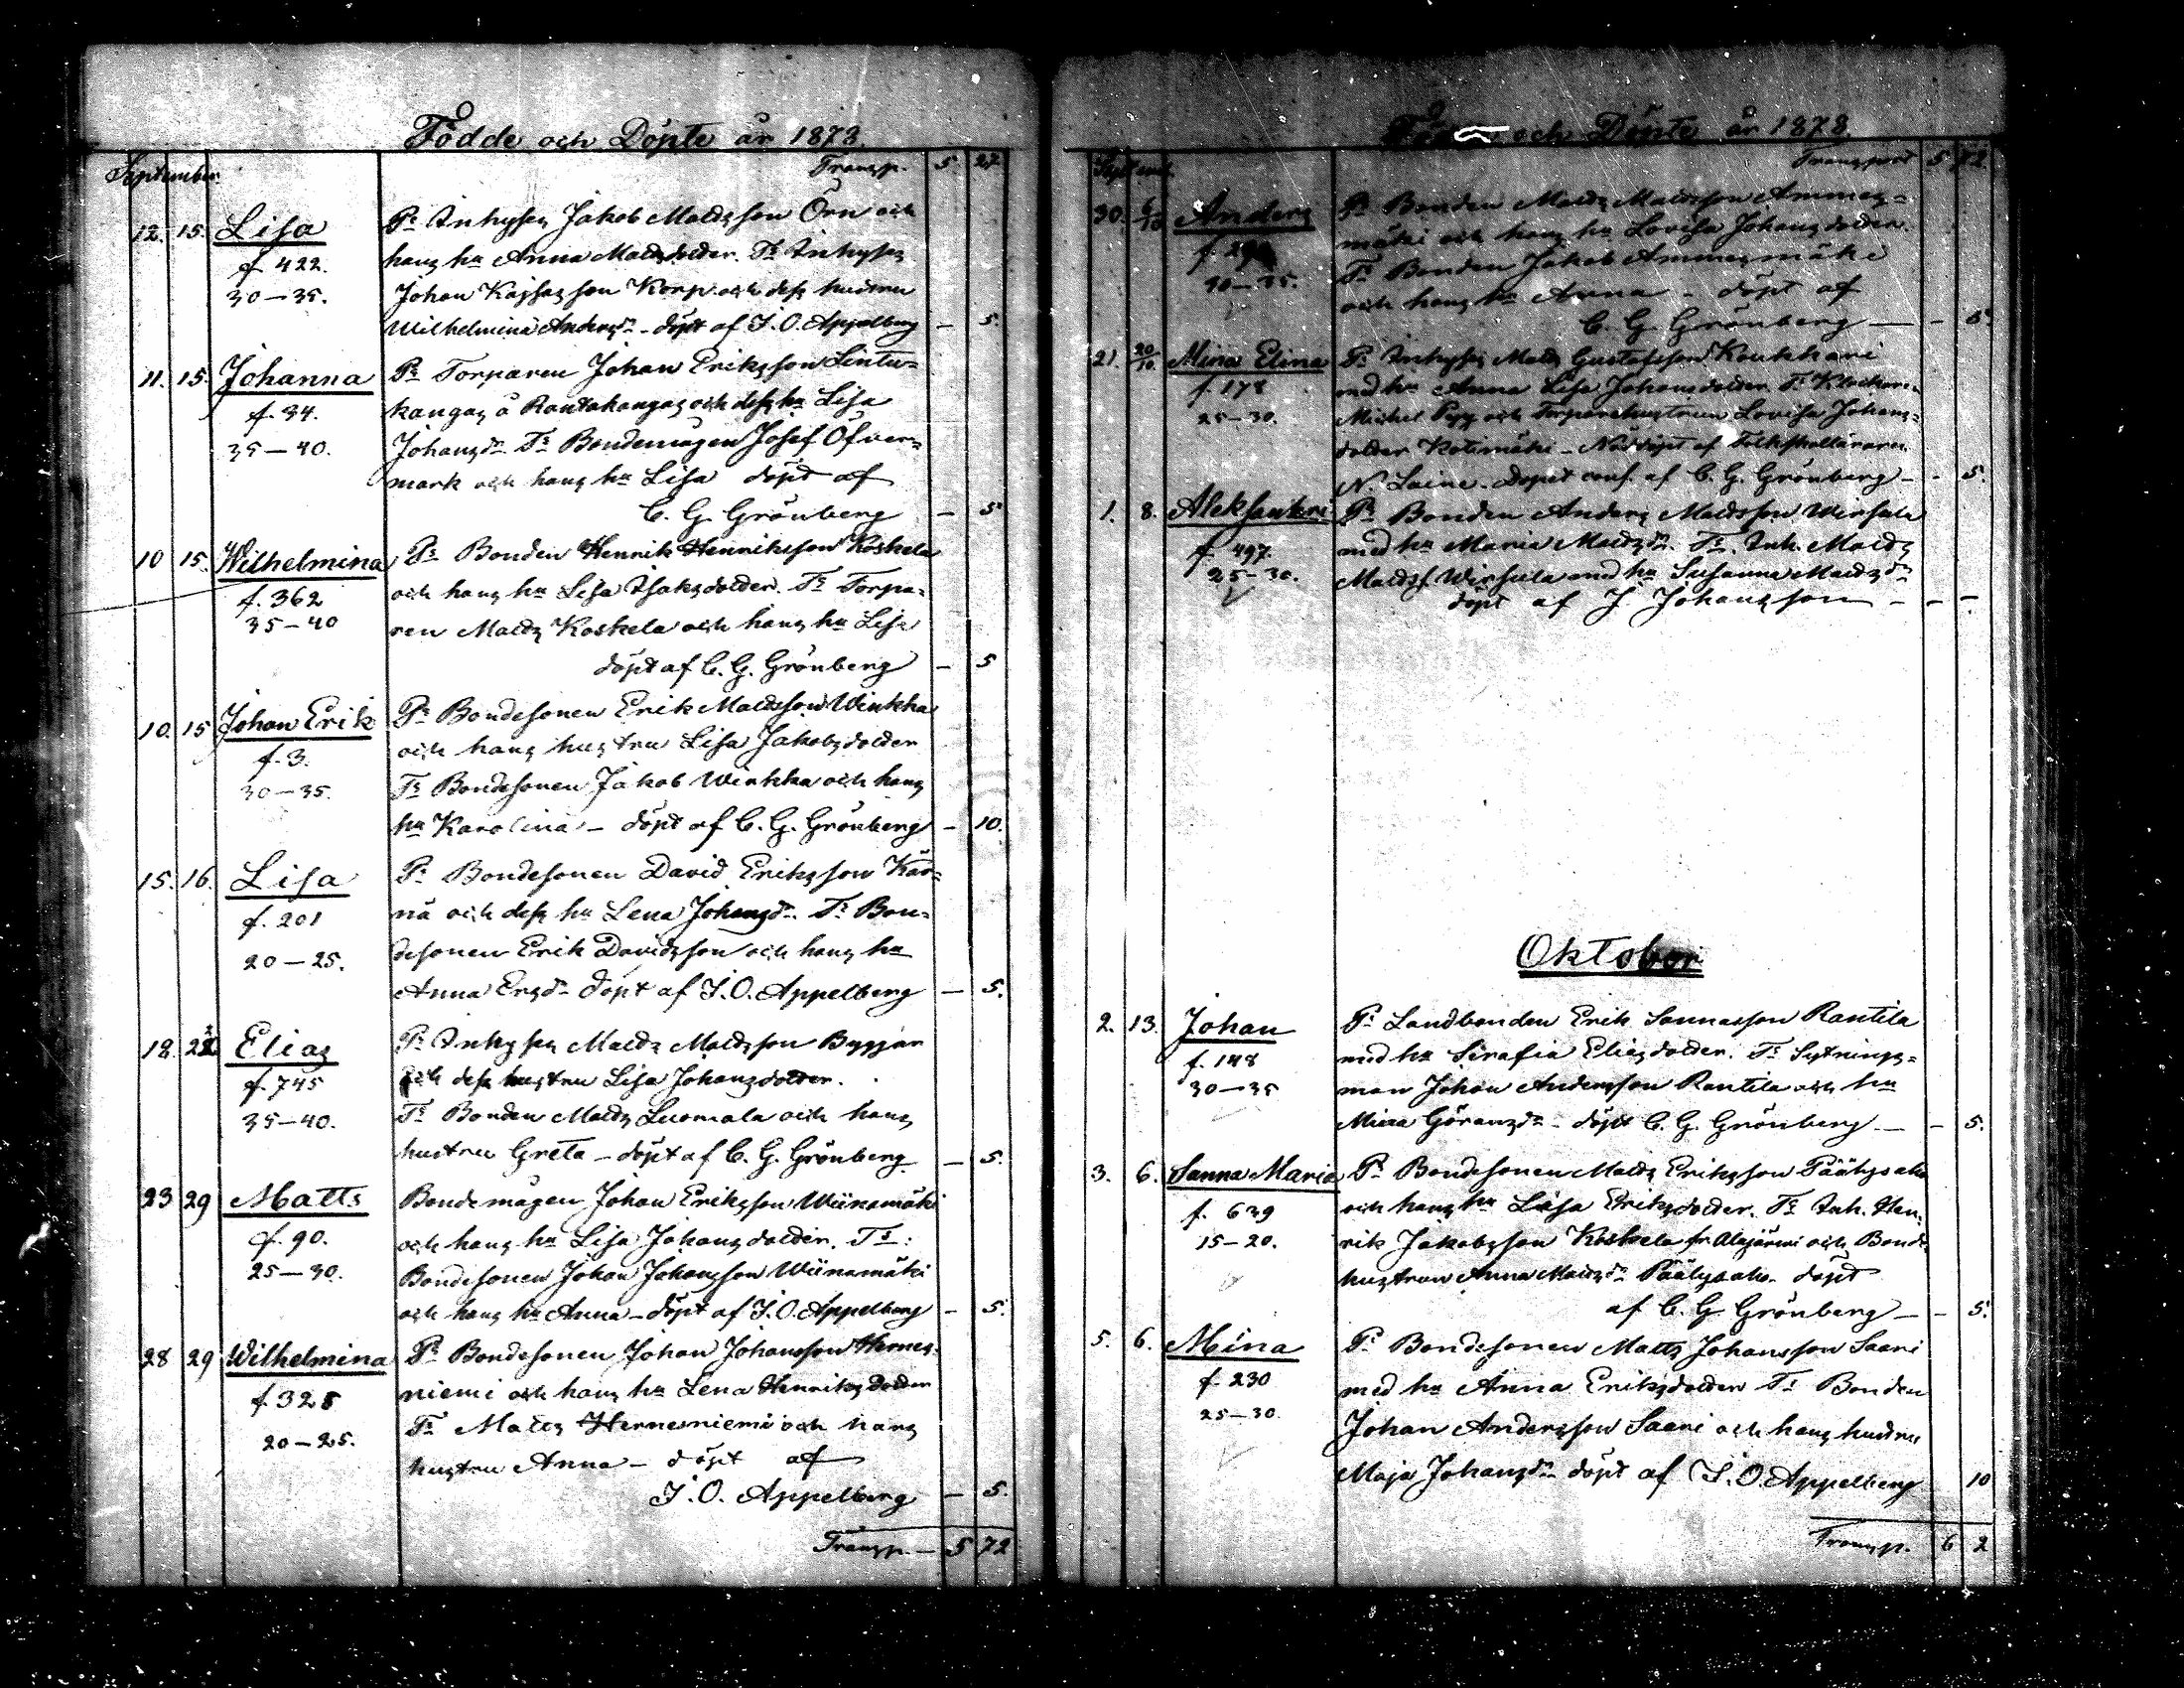 Födde och Döpte år 1878.
September. Transp. 5. 27.
12. 15. Lisa Ps Inhyses Jakob Mattsson Örn och
f. 422. hans hu Anna Mattsdotter. Ts Inhyses
30–35. Johan Kajsasson Korp och dess hustru
Wilhelmina Andersdn – döpt af J. O. Appelberg – 5.
11. 15. Johanna Ps Torparen Johan Eriksson Lintu=
f. 34. kangas å Rantakangas och dess hu Lisa
35–40. Johansdn Ts Bondemågen Josef Öfver=
mark och hans hu Lisa döpt af
C. G. Grönberg – 5
10 15. Wilhelmina Ps Bonden Henrik Henriksson Koskela
f. 362 och hans hu Lisa Isaksdotter. Ts Torpa=
35–40 ren Matts Koskela och hans hu Lisa
döpt af C. G. Grönberg – 5
10. 15 Johan Erik Ps Bondesonen Erik Mattsson Winkka
f. 3. och hans hustru Lisa Jakobsdotter
30–35. Ts Bondesonen Jakob Winkka och hans
hu Karolina – döpt af C. G. Grönberg – 10.
15. 16. Lisa Ps Bondesonen David Eriksson Kär=
f. 201 nä och dess hu Lena Johansdn. Ts Bon=
20–25. desonen Erik Davidsson och hans hu
Anna Ersdn döpt af J. O. Appelberg – 5.
18. 22 Elias Ps Inhyses Matts Mattsson Byggar
f. 745 och dess hustru Lisa Johansdotter.
35–40. Ts Bonden Matts Luomala och hans
hustru Greta – döpt af C. G. Grönberg – 5.
23 29 Matts Bondemågen Johan Eriksson Wiinamäki
f. 90. och hans hu Lisa Johansdotter. Ts:
25–30. Bondesonen Johan Johansson Wiinamäki
och hans hu Anna – döpt af J. O. Appelberg – 5.
28 29 Wilhelmina Ps Bondesonen Johan Johansson Hernes=
f. 328 niemi och hans hu Lena Henriksdotter
20–25. Ts Matts Hernesniemi och hans
hustru Anna – döpt af
J. O. Appelberg – 5.
Transp. – 5 72
och Döpte år 1878.
Transport 5 72.
30. 6/10 Anders Ps Bonden Matts Mattsson Ammes=
mäki och hans hu Lovisa Johansdotter.
Ts Bonden Jakob Ammesmäki
och hans hu Anna – döpt af
C. G. Grönberg – – 5.
21. 20/10. Mina Elina Ps Inhyses Matts Gustafsson Koukkari
f. 178 med hu Anna Lisa Johansdotter. Ts Klockaren
25–30. Michel Pigg och Torparehustrun Lovisa Johans=
dotter Kotimäki – Nöddöpt af Folkskolläraren
N. Laine. Dopet conf. af C. G. Grönberg – – 5.
1. 8. Aleksanteri Ps Bonden Anders Mattsson Wirsula
f. 497. med hu Maria Mattsdn. Ts. Inh. Matts
25–30. Mattss. Wirsula med hu Susanna Mattsdn
döpt af J. Johansson – – –
Oktober
2. 13. Johan Ps Landbonden Erik Sannasson Rantila
f. 148 med hu Serafia Eliasdotter. Ts Sytnings=
30–35 man Johan Andersson Rantila och hu
Mina Göransdn – döpt C. G. Grönberg – – 5.
3. 6. Sanna Maria Ps Bondesonen Matts Eriksson Päälysaho
f. 639 och hans hu Lisa Eriksdotter. Ts Inh. Hen=
15–20. rik Jakobsson Koskela fr. Alajärwi och Bonde
hustrun Anna Mattsdn Päälysaho. döpt
af C. G. Grönberg – – 5.
5. 6. Mina Ps Bondesonen Matts Johansson Saari
f. 230 med hu Anna Eriksdotter Ts Bonden
25–30. Johan Andersson Saari och hans hustru
Maja Johansdn döpt af J. O. Appelberg 10
Transp. 6 2